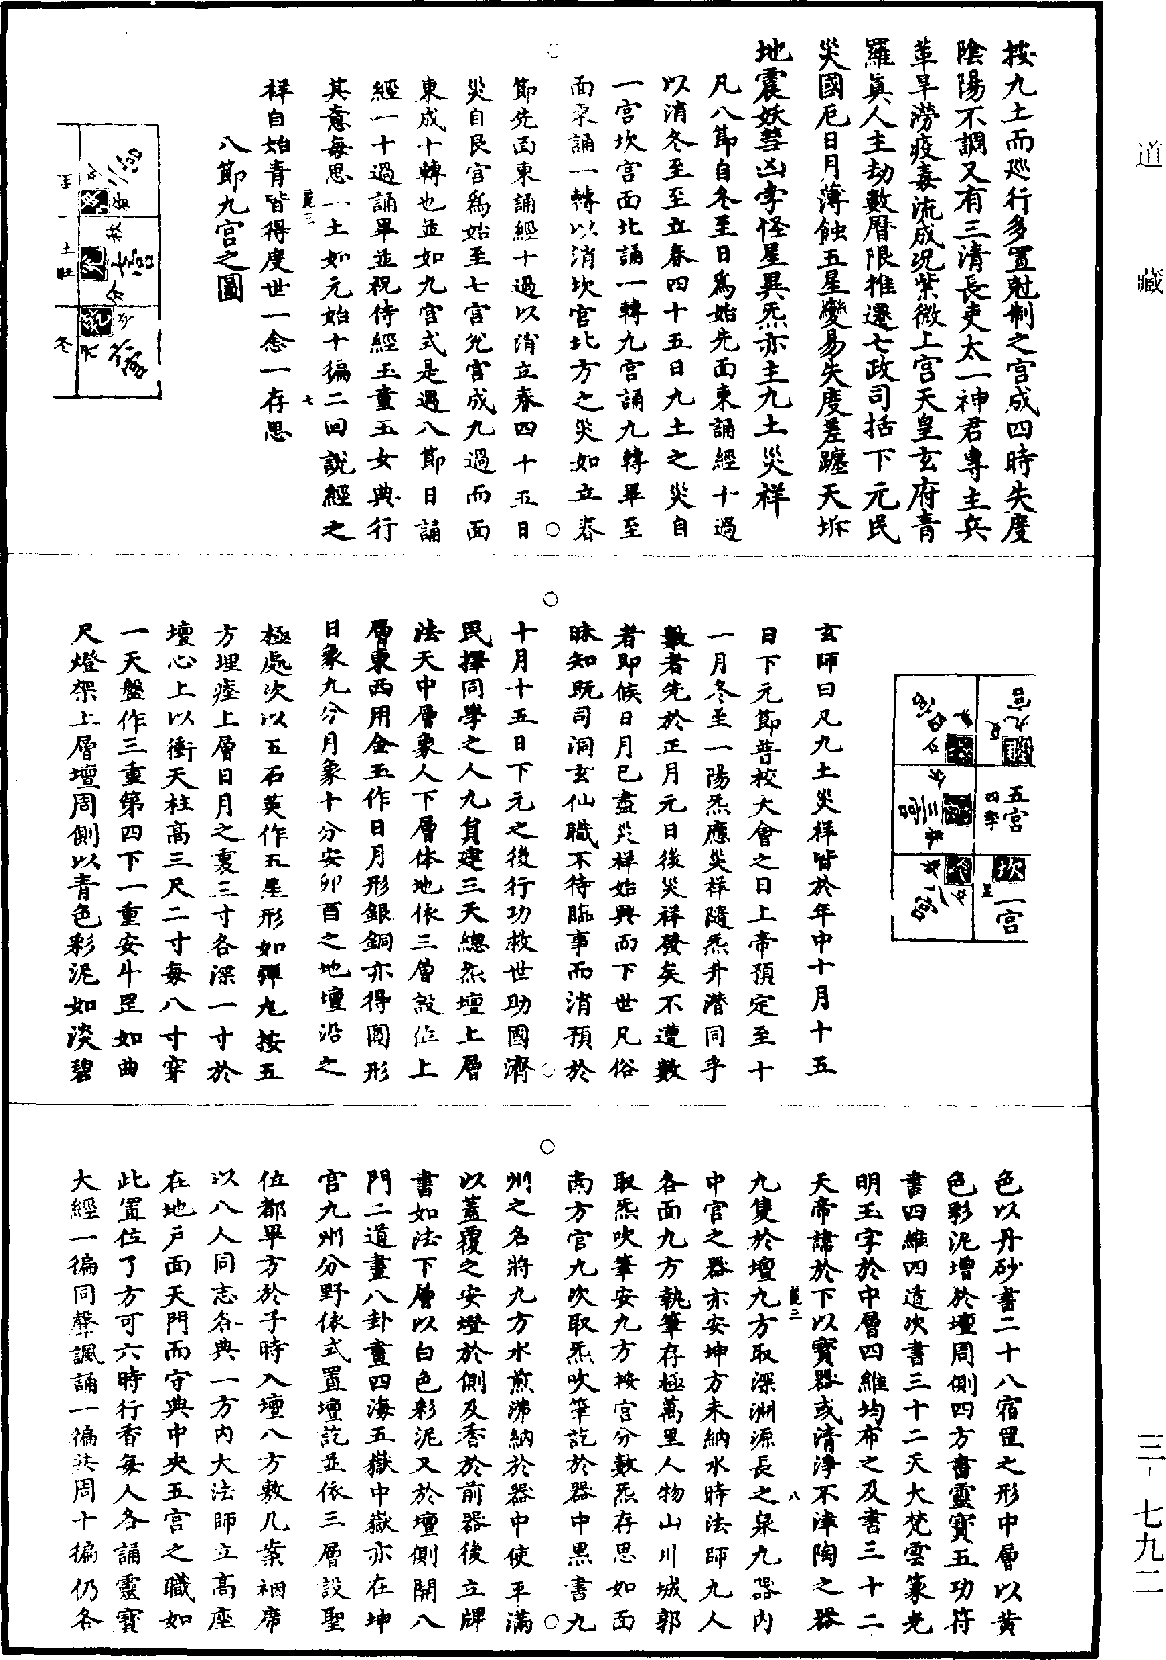 道藏
三-七九二
按九土而巡行多置尅制之宮成四時失度
陰陽不調又有三清長吏太一神君專主兵
革旱澇疫毒流成況紫微上宮天皇玄府青
羅真人主劫數曆限推遷七政司括下元民
災國厄日月薄蝕五星變易失度差躔天坼
地震妖彗凶孛怪星異炁亦主九土災祥
凡八節自冬至日為始先面東誦經十過
以消冬至至立春四十五日九土之災自
一宮坎宮面北誦一轉九宮誦九轉畢至
面東誦一轉以消坎宮北方之災如立春
節先面東誦經十過以消立春四十五日
災自艮宮為始至七宮兌宮成九過而面
東成十轉也並如九宮式是過八節日誦
經一十過誦畢並祝侍經玉童玉女典行
其意每思一土如元始十徧二回說經之
祥自始青皆得度世一念一存思
八節九宮之圖
九宮
五宮
坎一宮
玄師曰凡九土災祥皆於年中十月十五
日下元節普校大會之日上帝預定至十
一月冬至一陽炁應災祥隨炁升潛同乎
數者先於正月元日後災祥發矣不遭數
者即候日月已盡災祥始興而下世凡俗
昧知既司洞玄仙職不待臨事而消預於
十月十五日下元之後行功救世助國濟
民擇同學之人九員建三天總炁壇上層
法天中層象人下層体地依三層設位上
層東西用金玉作日月形銀銅亦得圓形
日象九分月象十分安卯酉之地壇沿之
極處次以五石英作五星形如彈丸按五
方理瘞上層日月之裏三寸各深一寸於
壇心上以衝天柱高三尺二寸每八寸穿
一天盤作三重第四下一重安斗罡如曲
尺燈架上層壇周側以青色彩泥如淡碧
色以丹砂書二十八宿罡之形中層以黃
色彩泥增於壇周側四方書靈寶五功符
書四維四道次書三十二天大梵雲篆光
明玉字於中層四維均布之及書三十二
天帝諱於下以寶器或清淨不津陶之器
九隻於壇九方取深淵源長之泉九器內
中宮之器亦安坤方未納水時法師九人
各面九方執筆存極萬里人物山川城郭
取炁吹筆安九方按宮分數炁存思如面
南方宮九吹取炁吹筆訖於器中黑書九
州之名將九方水煎沸納於器中使平滿
以蓋覆之安燈於側及香於前器後立牌
書如法下層以白色彩泥又於壇側開八
門二道畫八卦畫四海五嶽中嶽亦在坤
宮九州分野依式置壇訖並依三層設聖
位都畢方於子時入壇八方敷几案裀席
以八人同志各典一方內大法師立高座
在地戶面天門而守典中央五宮之職如
此置位了方可六時行香每人各誦靈寶
大經一徧同聲諷誦一徧共周十徧仍各